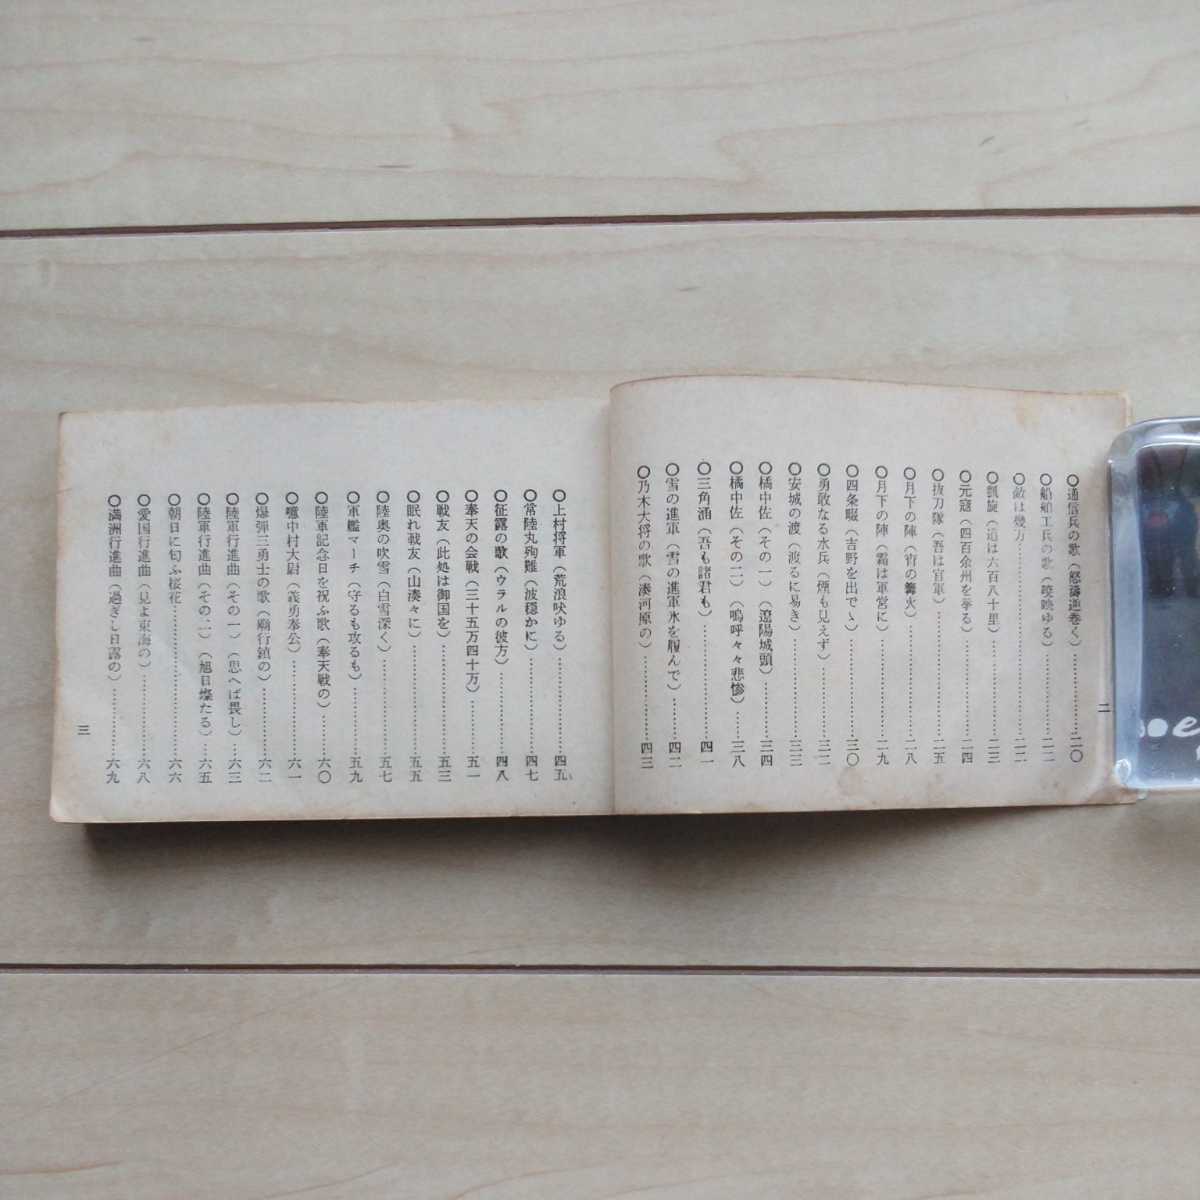 ○通信兵の歌（怒濤逆巻く）…………二〇
○船舶工兵の歌（暁映ゆる）…………二二
○敵は幾万…………二二
○凱旋（道は六百八十里）…………二三
○元寇（四百余州を挙る）…………二四
○抜刀隊（吾は官軍）…………二五
○月下の陣（宵の篝火）…………二八
○月下の陣（霜は軍営に）…………二九
○四条畷（吉野を出でゝ）…………三〇
○勇敢なる水兵（煙も見えず）…………三二
○安城の渡（渡るに易き）…………三三
○橘中佐（その一）（遼陽城頭）…………三四
○橘中佐（その二）（嗚呼々々悲惨）…………三八
○三角涌（吾も諸君も）…………四一
○雪の進軍（雪の進軍氷を履んで）…………四二
○乃木大将の歌（湊河原の）…………四三
二
○上村将軍（荒浪吠ゆる）…………四五
○常陸丸殉難（波穏かに）…………四七
○征露の歌（ウラルの彼方）…………四八
○奉天の会戦（三十五万四十万）…………五一
○戦友（此処は御国を）…………五三
○眠れ戦友（山湊々に）…………五五
○陸奥の吹雪（白雪深く）…………五七
○軍艦マーチ（守るも攻るも）…………五九
○陸軍記念日を祝ふ歌（奉天戦の）…………六〇
○噫中村大尉（義勇奉公）…………六一
○爆弾三勇士の歌（廟行鎮の）…………六二
○陸軍行進曲（その一）（思へば畏し）…………六三
○陸軍行進曲（その二）（旭日燦たる）…………六五
○朝日に匂ふ桜花…………六六
○愛国行進曲（見よ東海の）…………六八
○満洲行進曲（過ぎし日露の）…………六九
三